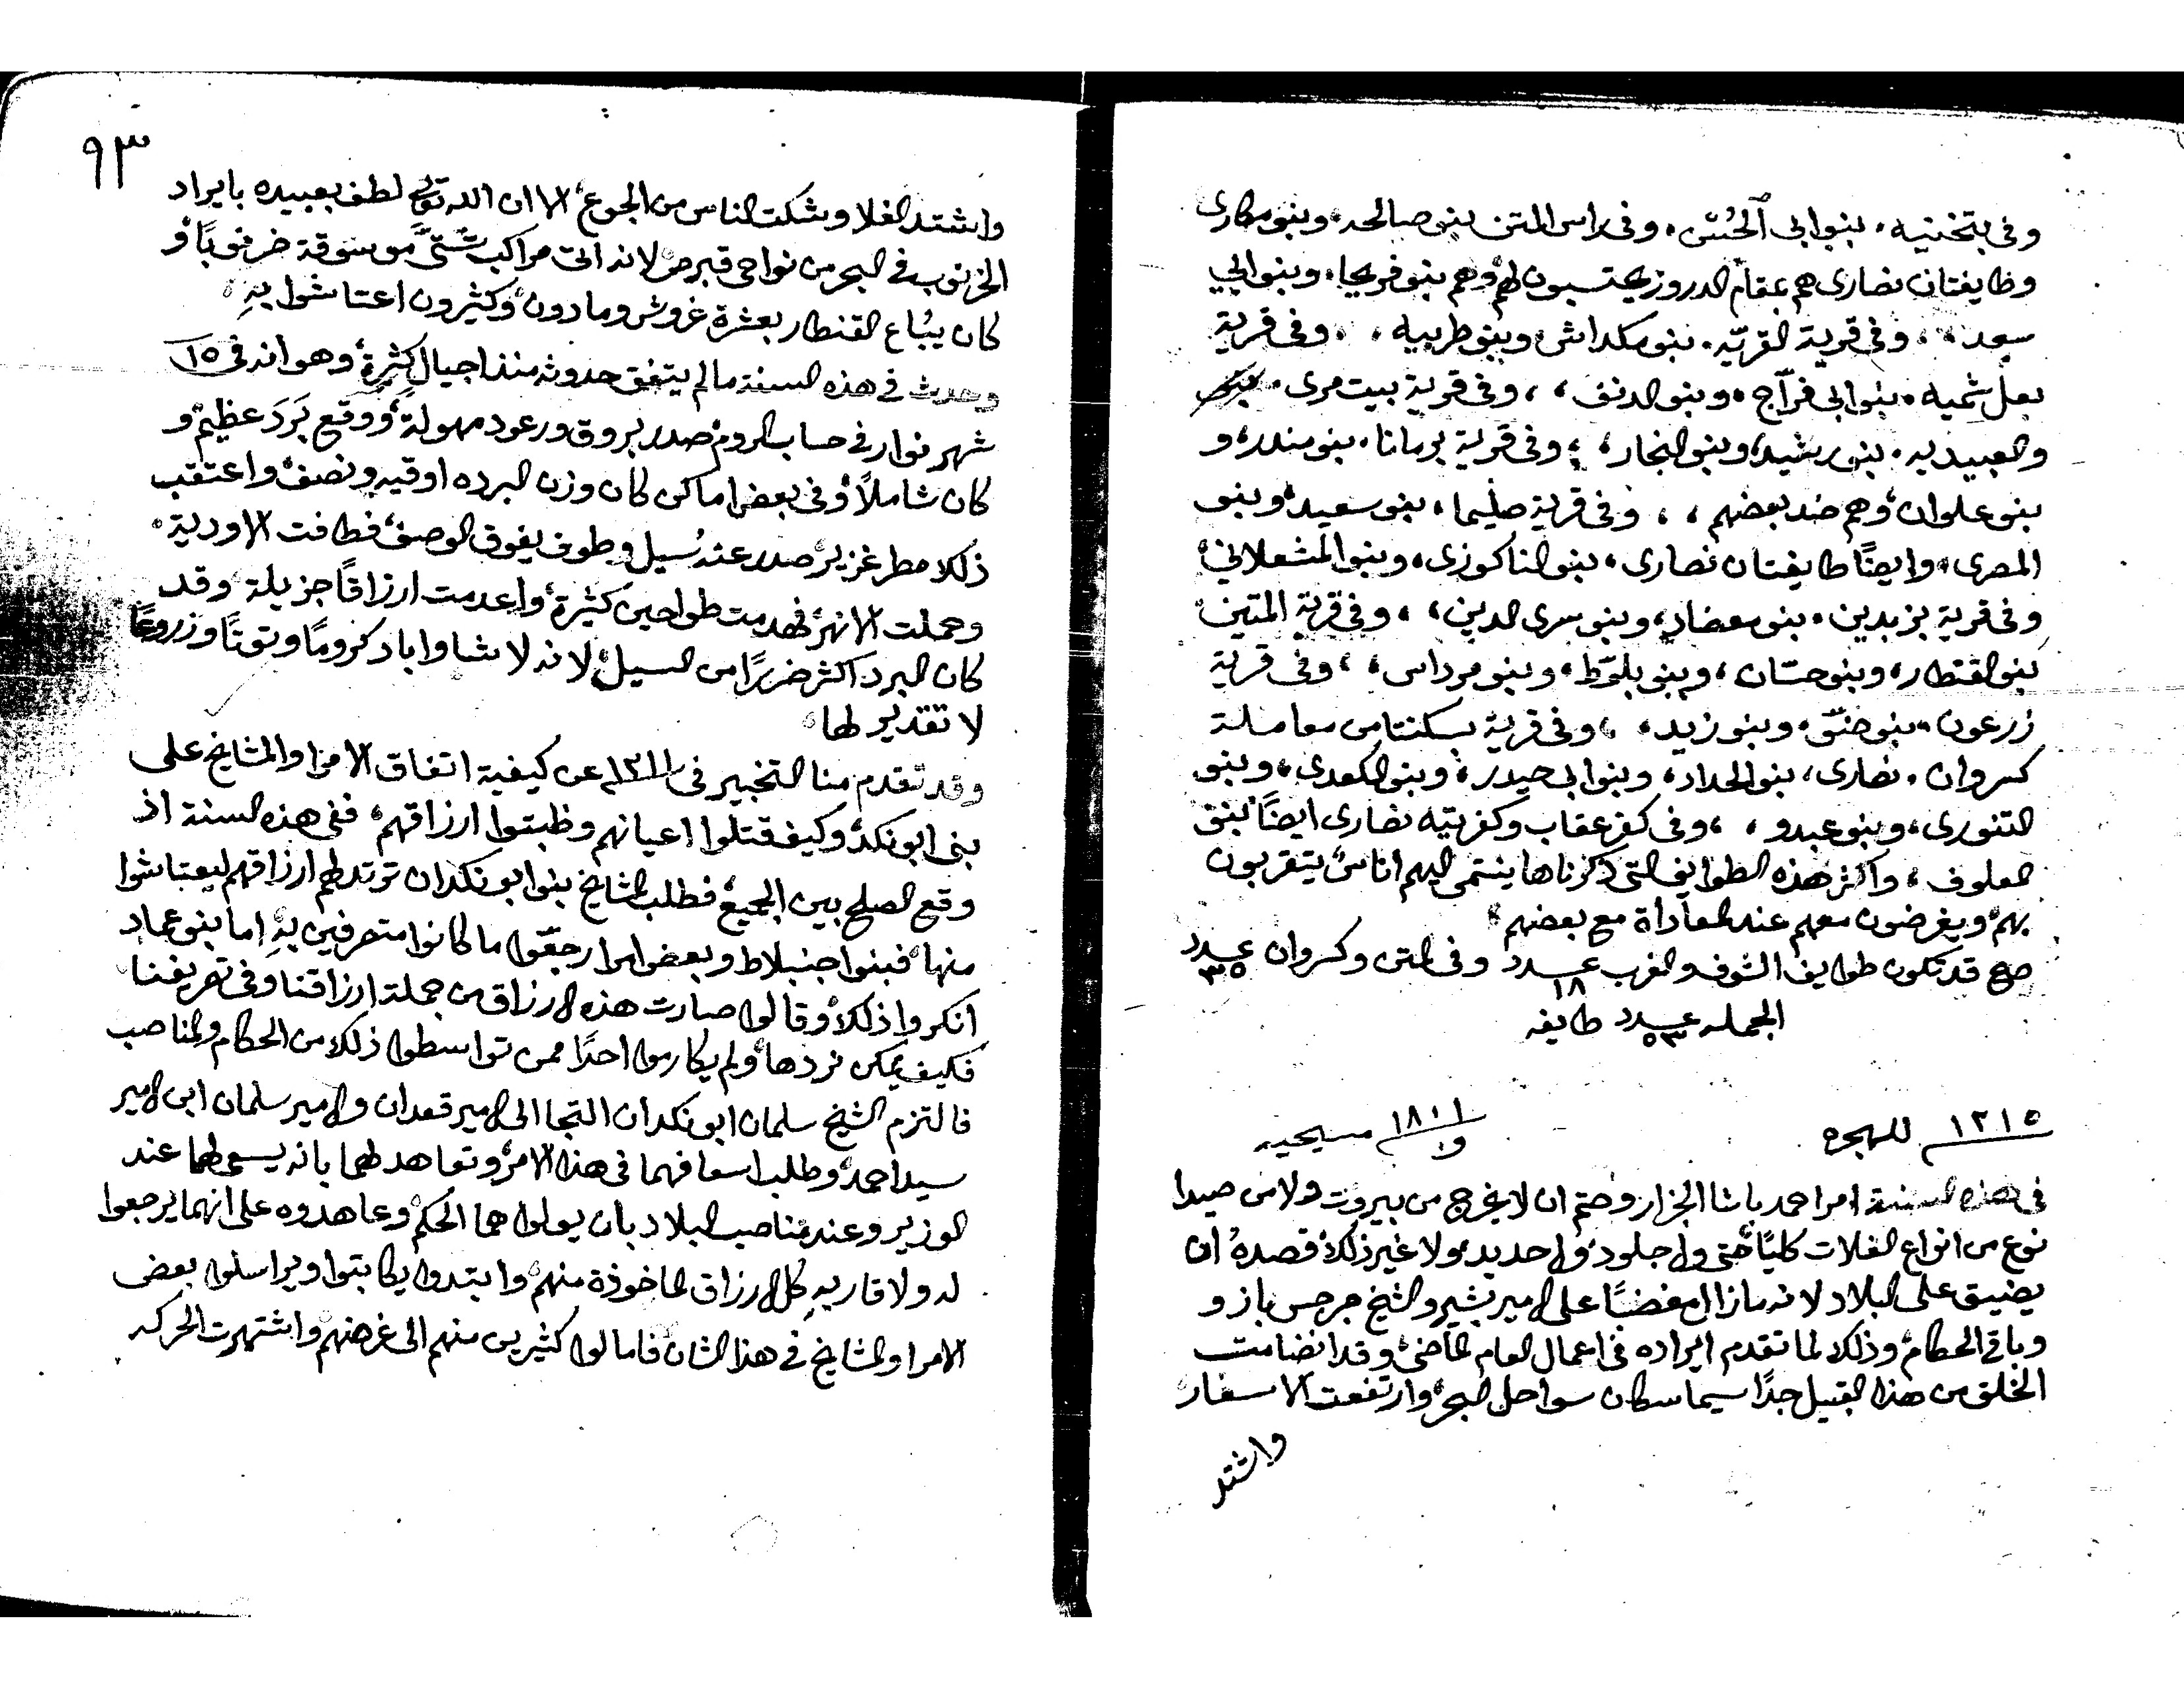 وفى بتخنيه، بنوا ابى الحُسن، وفى راس المتن بنو صالحه، وبنو مكارى
وطايفتان نصارى هم بمقام الدروز يحتسبون لهم وهم بنو فريحا، وبنوا ابي
سعد،، وفى قرية القريّه، بنو مكداش وبنو طربيه،، وفى قرية
بعل شميه، بنوا ابى فرّاج، وبنو الدنف،، وفى قرية بيت مرى،
والعبيديه، بنو رشيد، وبنو النجار،، وفى قرية برمانا، بنو منذر، و
بنو علوان، وهم ضد بعضهم،، وفى قرية صليما، بنو سعيد، وبنو
المصرى، وايضًا طايفتان نصارى، بنو الناكوزى، وبنو المشعلاني
وفى قرية بزبدين، بنو معضاد، وبنو سرى الدين،، وفى قرية المتين
بنو القنطار، وبنو حسّان، وبنو بلّوط، وبنو مرداس،، وفى قرية
زرعون، بنو ضوّ، وبنو زيد،، وفى قرية بسكنتا من معاملة
كسروان، نصارى، بنو الحداد، وبنوا ابى حيدر، وبنو الكعدى، وبنو
التنورى، وبنو عبدو،، وفى كفر عقاب وكفرتيه نصارى ايضًا بنو
المعلوف، واكثر هذه الطوايف التى ذكرناها ينتمى اليهم اناسٌ يتقربون
بهم ويغرضون معهم عند المعاداة مع بعضهم
صح قد تكون طوايف الشوف والغرب عدد ١٨ وفى المتن وكسروان عدد ٣٥
الجمله عدد ٥٣ طايفه
١٢١٥ للهجره ١٨٠١ مسيحيه
فى هذه السنة امر احمد باشا الجزار وحتم ان لا يخرج من بيروت ولا من صيدا
نوع من انواع الغلات كليًا حتى ولا جلود ولا حديد ولا غير ذلك قصدهُ ان
يضيق على البلاد لانه مازال مغضبًا على الامير بشير والشيخ جرجس باز و
وباقى الحكام وذلك لما تقدم ايراده فى اعمال العام الماضى وقد انضامت
الخلق من هذا القبيل جدًا سيما سكان سواحل البحر وارتفعت الاسعار
واشتد
٩٣
واشتد الغلا وشكت الناس من الجوع الا ان الله تعالى لطف بعبيده بايراد
الخرنوب فى البحر من نواحى قبرص لانه اتى مراكب شتّى موسوقة خرنوبًا و
كان يُباع القنطار بعشرة غروش وما دون وكثيرون اعتاشوا بهِ
وحدث فى هذه السنة ما لم يتفق حدوثه منذ اجيال كثيرة وهو انه فى ١٥
شهر نوار فى حساب الروم صدر بروق ورعود مهولة ووقع بَرَد عظيم و
كان شاملًا وفى بعض اماكن كان وزن البرده اوقيه ونصف واعتقب
ذلك مطر غزير صدر عنه سيل وطوف يفوق الوصف فطافت الاودية
وحملت الانهر فهدمت طواحين كثيرة واعدمت ارزاقًا جزيلة وقد
كان البرد اكثر ضررًا من السيل لانه لاشا واباد كرومًا وتوتًا وزروعًا
لا تقدير لها
وقد تقدم منا التخبير فى ١٢١١ عن كيفية اتفاق الامرا والمشايخ على
بنى ابو نكد وكيف قتلوا اعيانهم وظبتوا ارزاقهم ففى هذه السنة اذ
وقع الصلح بين الجميع فطلب المشايخ بنوا ابو نكد ان ترتد لهم ارزاقهم ليعتاشوا
منها فبنوا جنبلاط وبعض امرا رجعّوا ما كانوا متصرفين بهِ اما بنو عماد
انكروا ذلك وقالوا صارت هذه الارزاق من جملة ارزاقنا وفى تصريفنا
فكيف يمكن نردها ولم يكارموا احدًا ممن تواسطوا ذلك من الحكام والمناصب
فالتزم الشيخ سلمان ابو نكد ان التجا الى الامير قعدان والامير سلمان ابن الامير
سيد احمد وطلب اسعافهما فى هذا الامر وتعاهد لهما بانه يسعى لهما عند
الوزير وعند مناصب البلاد بان يولوا هما الحكم وعاهدوه على انهما يرجعوا
له ولاقاربهِ كل الارزاق الماخوذة منهم وابتدوا يكاتبوا ويراسلوا بعض
الامرا والمشايخ فى هذا الشان فامالوا كثيرين منهم الى غرضهم واشتهرت الحركه